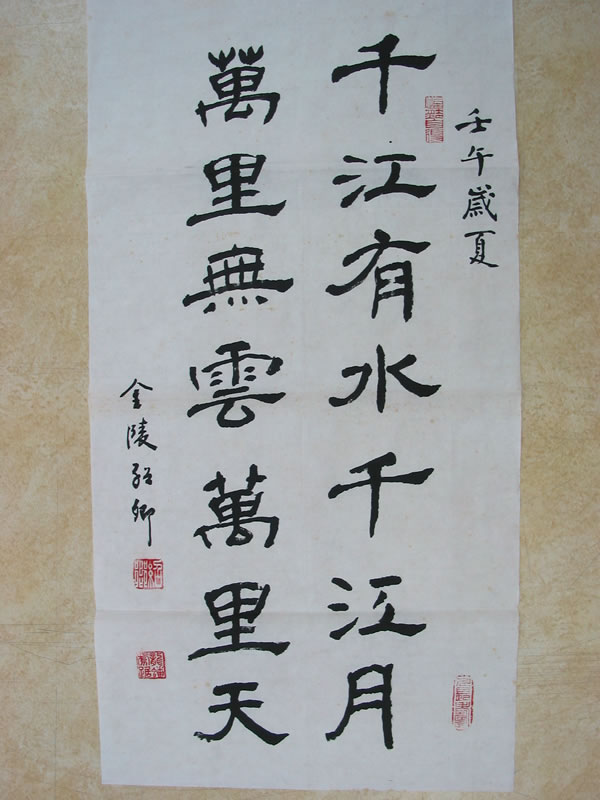 壬午歲夏
千江有水千江月
萬里無雲萬里天
金陵紹卿